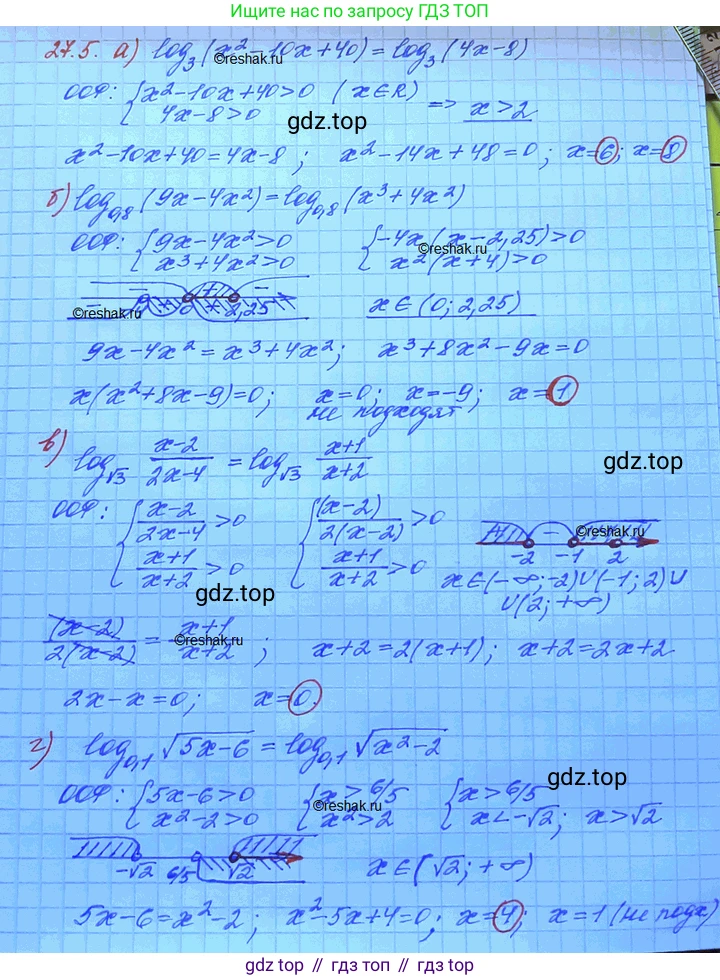 Ищите нас по запросу ГДЗ ТОП
27.5. а) log₃(x²-10x+40) = log₃(4x-8)
©reshak.ru
ООФ: { x²-10x+40>0 (x∈R)
4x-8>0 => x>2
gdz.top
x²-10x+40=4x-8; x²-14x+48=0; x=6; x=8
б) log₀,₈(9x-4x²)=log₀,₈(x³+4x²)
ООФ: { 9x-4x²>0 { -4x(x-2,25)>0
©reshak.ru
x³+4x²>0 x²(x+4)>0
- + -
- + 0 + 2,25 x∈(0; 2,25)
©reshak.ru
9x-4x²=x³+4x²; x³+8x²-9x=0
x(x²+8x-9)=0; x=0; x=-9; x=1
не подходят
в) log√3 (x-2)/(2x-4) = log√3 (x+1)/(x+2)
gdz.top
ООФ: { (x-2)/(2x-4)>0 { (x-2)/2(x-2)>0
(x+1)/(x+2)>0 (x+1)/(x+2)>0
+ - ©reshak.ru
-2 -1 2
gdz.top
x∈(-∞;-2)∪(-1;2)∪
∪(2;+∞)
(x-2)/2(x-2) = (x+1)/(x+2); x+2=2(x+1); x+2=2x+2
©reshak.ru
2x-x=0; x=0.
г) log₀,₁√5x-6 = log₀,₁√x²-2
gdz.top
ООФ: { 5x-6>0 { x>6/5 { x>6/5
©reshak.ru
x²-2>0 x²>2 x<-√2; x>√2
-√2 6/5 √2 x∈(√2;+∞)
5x-6=x²-2; x²-5x+4=0; x=4; x=1 (не подх)
gdz.top // гдз.топ // gdz.top